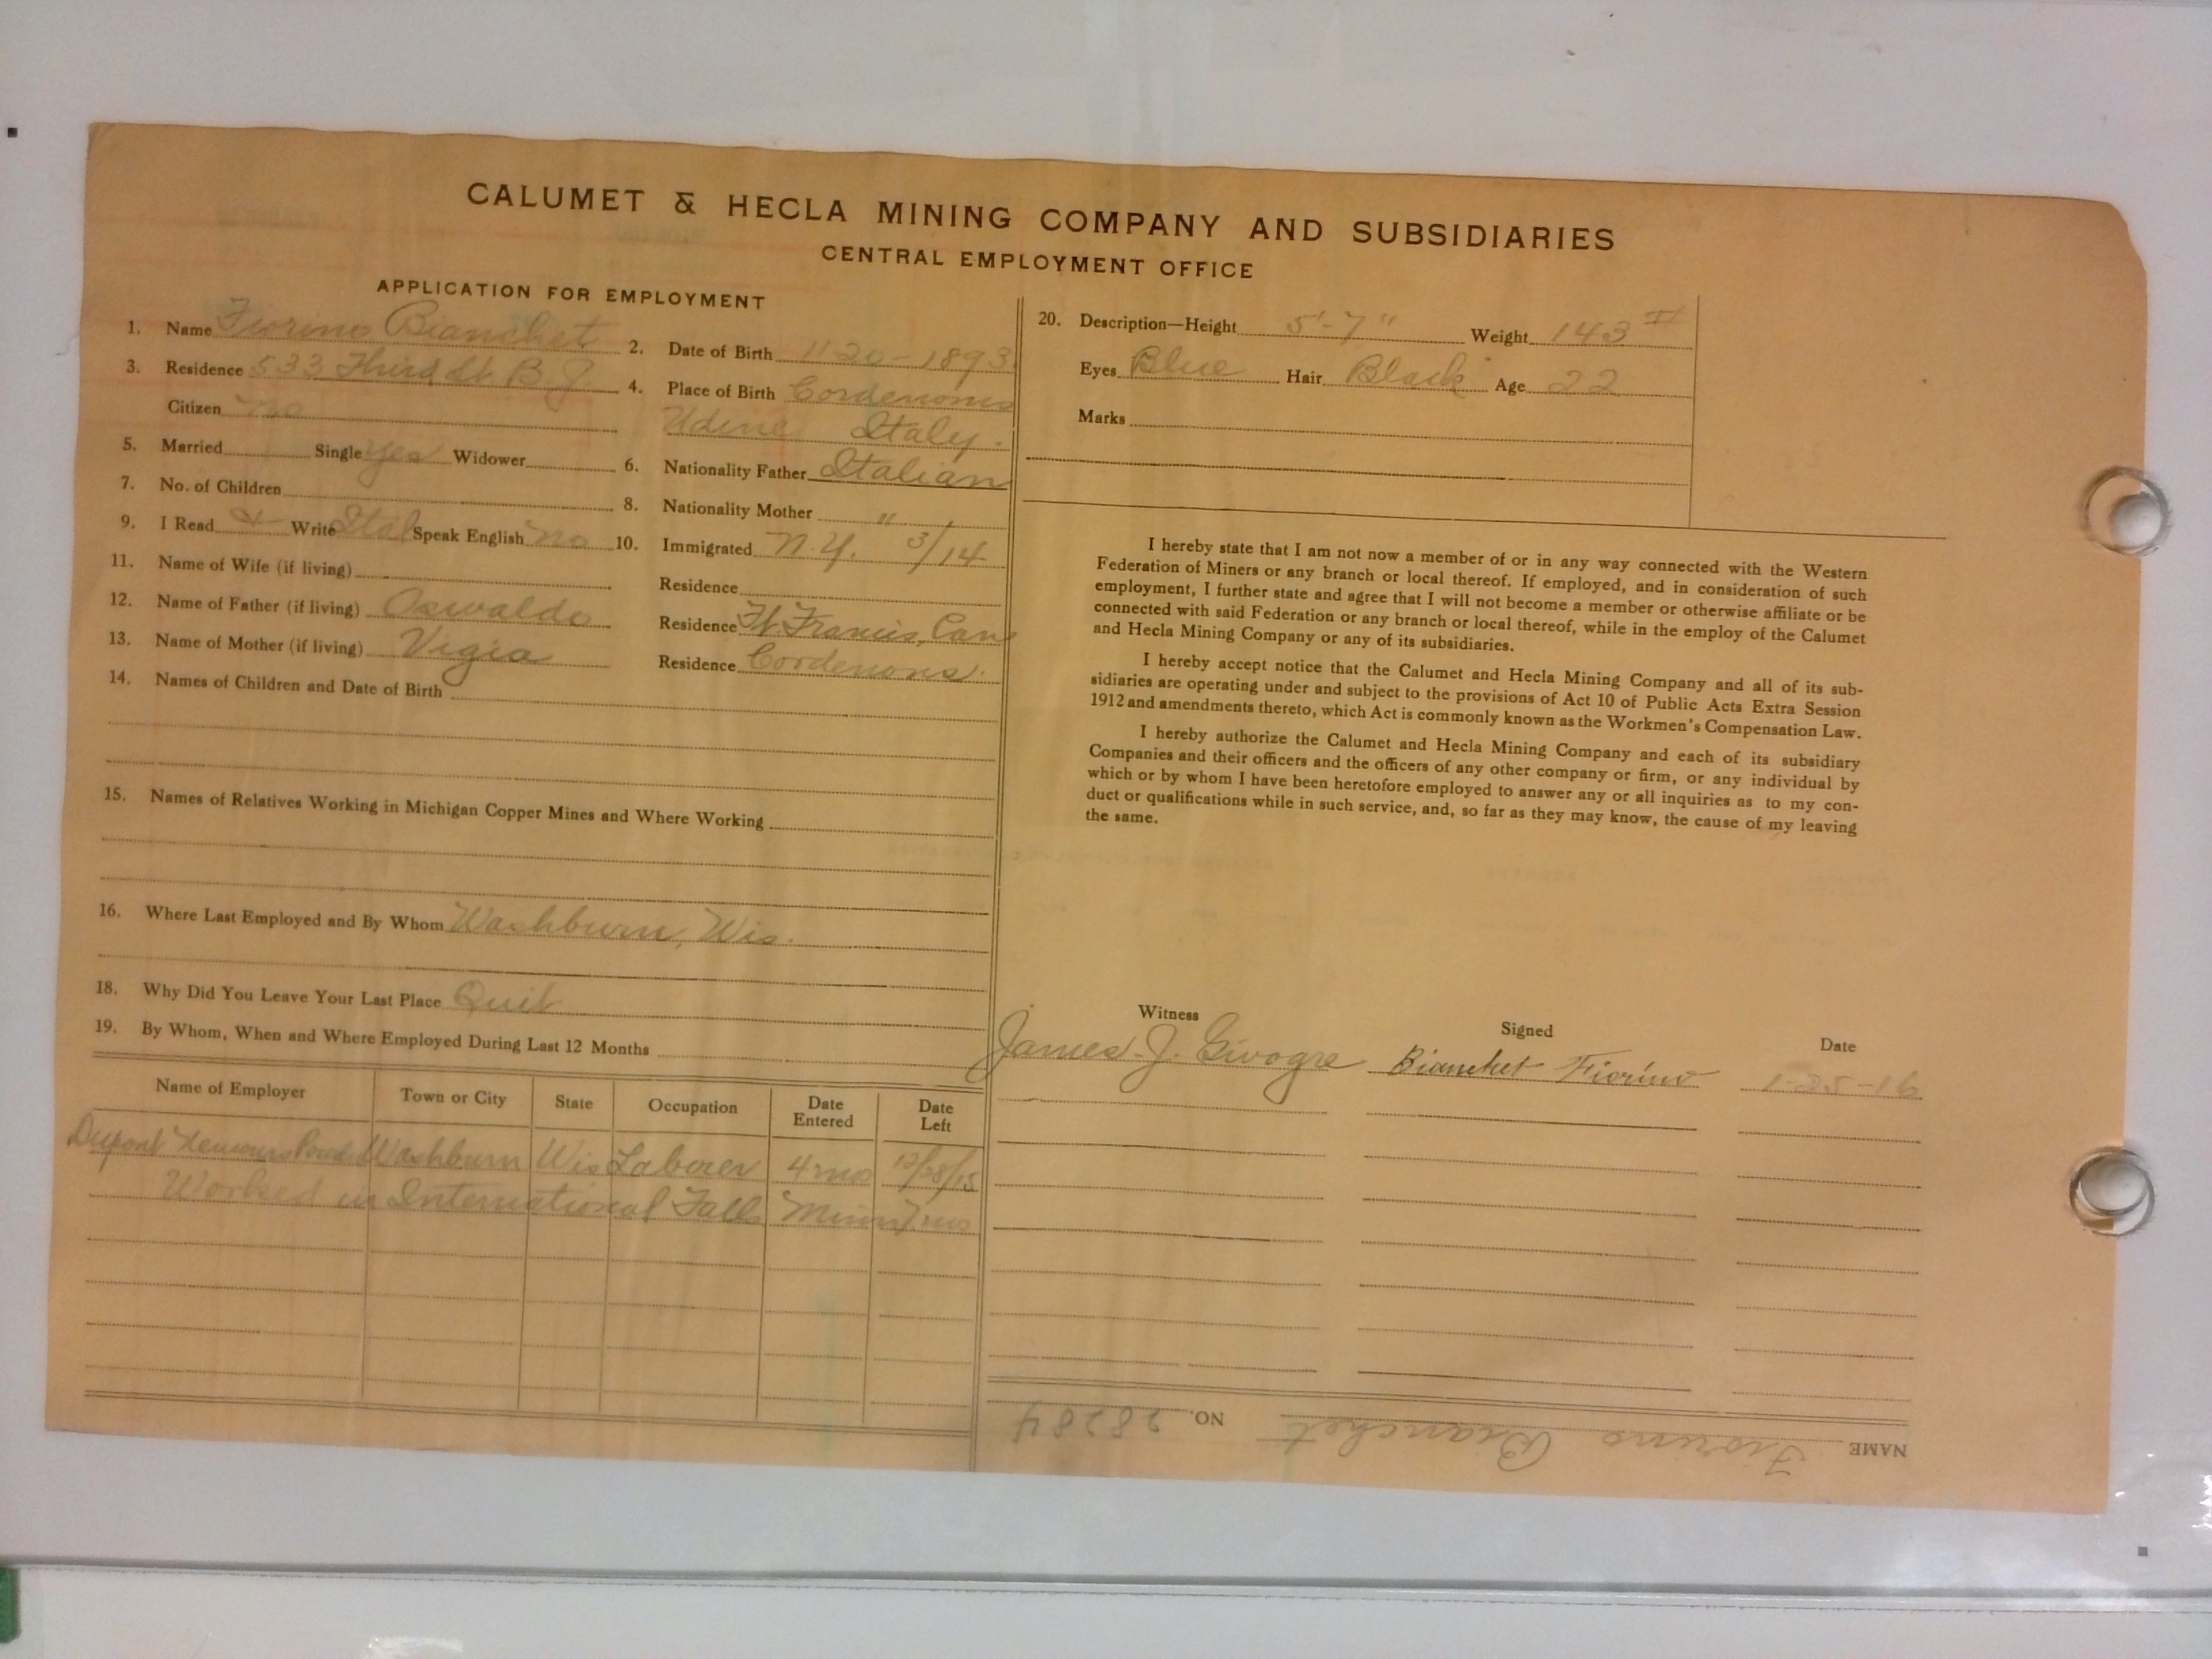 CALUMET & HECLA MINING COMPANY AND SUBSIDIARIES
CENTRAL EMPLOYMENT OFFICE
APPLICATION FOR EMPLOYMENT
1. Name Fiorino Bianchet
2. Date of Birth 11-20-1893
3. Residence 533 Third St. B.J.
4. Place of Birth Cordenons
Citizen no
Udine Italy.
5. Married Single yes Widower
6. Nationality Father Italian
7. No. of Children
8. Nationality Mother "
9. I Read & Write Ital Speak English no
10. Immigrated N.Y. 3/14
11. Name of Wife (if living)
Residence
12. Name of Father (if living) Oswaldo
Residence Ft. Francis, Can
13. Name of Mother (if living) Vigia
Residence Cordenons.
14. Names of Children and Date of Birth
15. Names of Relatives Working in Michigan Copper Mines and Where Working
16. Where Last Employed and By Whom Washburn, Wis.
18. Why Did You Leave Your Last Place Quit
19. By Whom, When and Where Employed During Last 12 Months
Name of Employer Town or City State Occupation Date Entered Date Left
Dupont Washburn Wis Laborer 4 mo 12/28/15
Worked in International Falls Minn 7 mo
20. Description—Height 5'-7" Weight 143 #
Eyes Blue Hair Black Age 22
Marks
I hereby state that I am not now a member of or in any way connected with the Western
Federation of Miners or any branch or local thereof. If employed, and in consideration of such
employment, I further state and agree that I will not become a member or otherwise affiliate or be
connected with said Federation or any branch or local thereof, while in the employ of the Calumet
and Hecla Mining Company or any of its subsidiaries.
I hereby accept notice that the Calumet and Hecla Mining Company and all of its sub-
sidiaries are operating under and subject to the provisions of Act 10 of Public Acts Extra Session
1912 and amendments thereto, which Act is commonly known as the Workmen's Compensation Law.
I hereby authorize the Calumet and Hecla Mining Company and each of its subsidiary
Companies and their officers and the officers of any other company or firm, or any individual by
which or by whom I have been heretofore employed to answer any or all inquiries as to my con-
duct or qualifications while in such service, and, so far as they may know, the cause of my leaving
the same.
Witness Signed Date
James J. Givogre Bianchet Fiorino 1-25-16
NAME Fiorino Bianchet NO. 28284